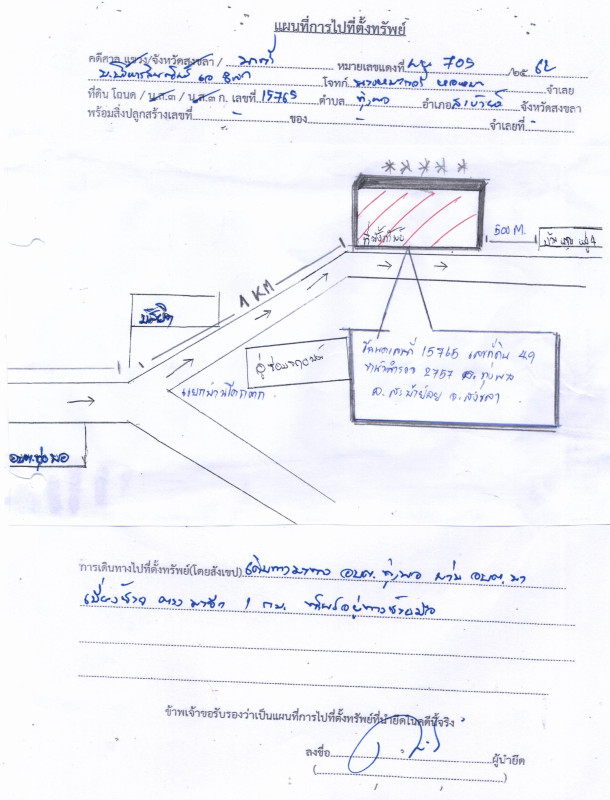 แผนที่การไปที่ตั้งทรัพย์
คดีศาล แขวง/จังหวัดสงขลา / นาทวี หมายเลขแดงที่ ผบ 709 /๒๕ 62
โจทก์ จำเลย
ที่ดิน โฉนด / น.ส.๓ / น.ส.๓ ก. เลขที่ 15765 ตำบล ทุ่งพอ อำเภอ สะบ้าย้อย จังหวัดสงขลา
พร้อมสิ่งปลูกสร้างเลขที่ - ของ - จำเลยที่ -
* * * * *
ที่ตั้งทรัพย์
500 M.
1 KM
มัสยิด
อู่ซ่อมรถยนต์
โฉนดเลขที่ 15765 เลขที่ดิน 49
หน้าสำรวจ 2757 ต. ทุ่งพอ
อ. สะบ้าย้อย จ. สงขลา
แยกบ้านโคกตก
อบต.ทุ่งพอ
การเดินทางไปที่ตั้งทรัพย์(โดยสังเขป) เดินทางมาทาง อบต. ทุ่งพอ ผ่าน อบต. มา
เบี่ยงซ้าย ตรงมาอีก 1 กม. ทรัพย์อยู่ทางซ้ายมือ
ข้าพเจ้าขอรับรองว่าเป็นแผนที่การไปที่ตั้งทรัพย์ที่นำยึดในคดีนี้จริง
ลงชื่อ ผู้นำยึด
( )